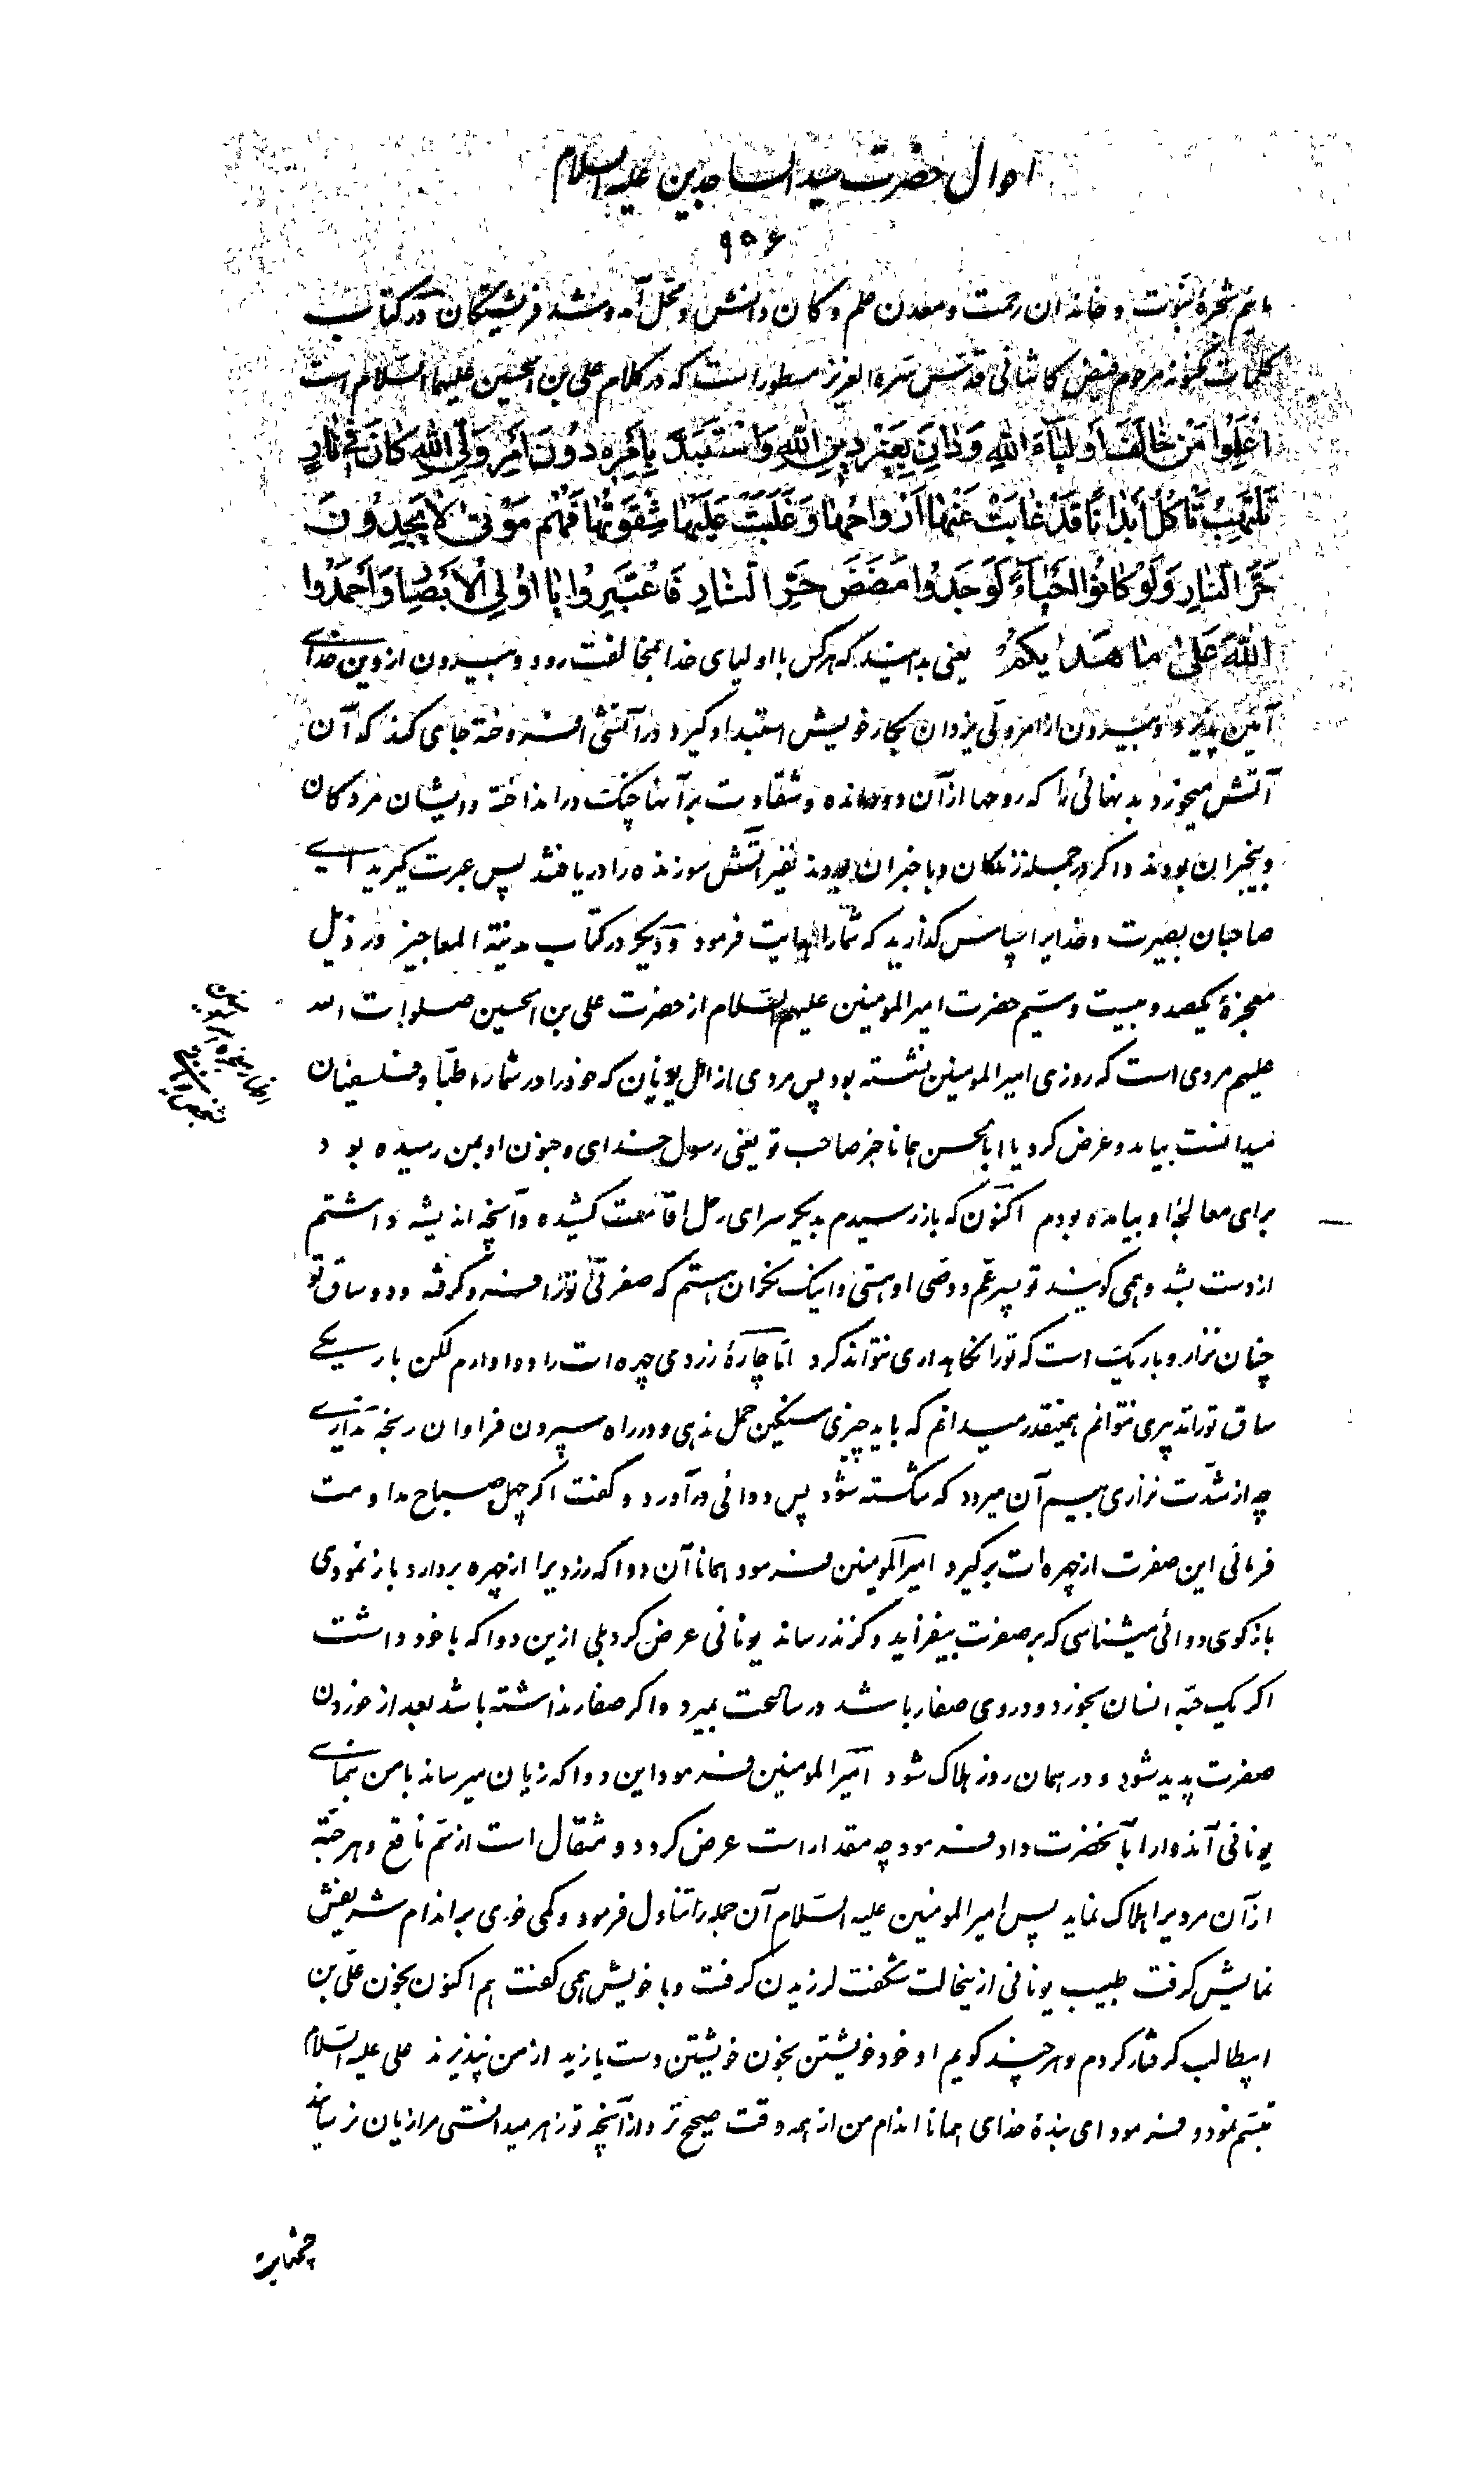 احوال حضرت سید الساجدین علیه السلام
۹۵۶
مائیم شجرهٔ نبوت و خاندان رحمت و معدن علم و کان دانش و محل آمد و شد فرشتگان و در کتاب
کلمات مکنونه مرحوم فیض کاشانی قدّس سره العزیز مسطور است که در کلام علی بن الحسین علیهما السّلام است
اعْلَمُوا مَنْ خالَفَ اَوْلِیآءَ اللهِ وَدانَ بِغَیْرِ دینِ اللهِ وَاسْتَبَدَّ بِاَمْرِهِ دُونَ اَمْرِ وَلِیِّ اللهِ کانَ فی نارٍ
تَلْتَهِبُ تَأْکُلُ اَبْداناً قَدْ غابَتْ عَنْها اَرْواحُها وَغَلَبَتْ عَلَیْها شِقْوَتُها فَهُمْ مَوْتی لا یَجِدُونَ
حَرَّ النّارِ وَلَوْ کانُوا اَحْیآءً لَوَجَدُوا مَضَضَ حَرِّ النّارِ فَاعْتَبِرُوا یا اُولِی الْاَبْصارِ وَاحْمَدُوا
اللهَ عَلی ما هَدایکُمْ یعنی بدانید که هرکس با اولیای خدا بمخالفت رود و بیرون از دین خدای
آئین پذیرد و بیرون از امر ولّی یزدان بکار خویش استبداد گیرد در آتشی افروخته جای کند که آن
آتش میخورد بدنهائی را که روحها از آن دور مانده و شقاوت بر آنها چنگ در انداخته و ایشان مردگان
و بیخبران بودند و اگر در جمله زندگان و باخبران بودند نفیر آتش سوزنده را دریافتند پس عبرت گیرید ای
صاحبان بصیرت و خدایرا سپاس گذارید که شما را هدایت فرمود و دیگر در کتاب مدینة المعاجیز در ذیل
معجزهٔ یکصد و بیست و سیّم حضرت امیر المومنین علیه السّلام از حضرت علی بن الحسین صلوات الله
علیهم مروی است که روزی امیر المومنین نشسته بود پس مردی از اهل یونان که خود را در شمار اطبّا و فلسفیان
میدانست بیامد و عرض کرد یا ابا الحسن همانا خبر صاحب تو یعنی رسول خدای و جنون او بمن رسیده بود
برای معالجهٔ او بیامده بودم اکنون که باز رسیدم بدیگر سرای رحل اقامت کشیده و آنچه اندیشه داشتم
از دست بشد و همی گویند تو پسر عم و وصی او هستی و اینک نگران هستم که صفرتی تو را فرو گرفته و دو ساق تو
چنان نزار و باریک است که تو را نگاهداری نتواند کرد امّا چارهٔ زردی چهره ات را دوا دارم لکن باریکی
ساق تو را تدبیری نتوانم همینقدر میدانم که باید چیزی سنگین حمل ندهی و در راه سپردن فراوان رنجه نداری
چه از شدّت نزاری بیم آن میرود که شکسته شود پس دوائی در آورد و گفت اگر چهل صباح مداومت
فرمائی این صفرت از چهره ات برگیرد امیر المومنین فرمود همانا آن دوا که زردیرا از چهره بردارد باز نمودی
باز گوی دوائی میشناسی که بر صفرت بیفزاید و گزند رساند یونانی عرض کرد بلی ازین دوا که با خود داشت
اگر یک حبّه انسان بخورد و در وی صفار باشد در ساعت بمیرد و اگر صفار نداشته باشد بعد از خوردن
صفرت پدید شود و در همان روز هلاک شود امیر المومنین فرمود این دوا که زیان میرساند بامن بنمای
یونانی آندوا را بآنحضرت داد فرمود چه مقدار است عرض کرد دو مثقال است از سّم ناقع و هر حبّه
از آن مردیرا هلاک نماید پس امیر المومنین علیه السّلام آن جمله را تناول فرمود و کمی خوی بر اندام شریفش
نمایش گرفت طبیب یونانی ازینحالت شگفت لرزیدن گرفت و با خویش همی گفت هم اکنون بخون علی بن
ابیطالب گرفتار گردم و هر چند گویم او خود خویشتن بخون خویشتن دست یازید از من نپذیرند علی علیه السّلام
تبسّم نمود و فرمود ای بندهٔ خدای همانا اندام من از همه وقت صحیح تر و از آنچه تو زهر میدانستی مرا زیان نرساند